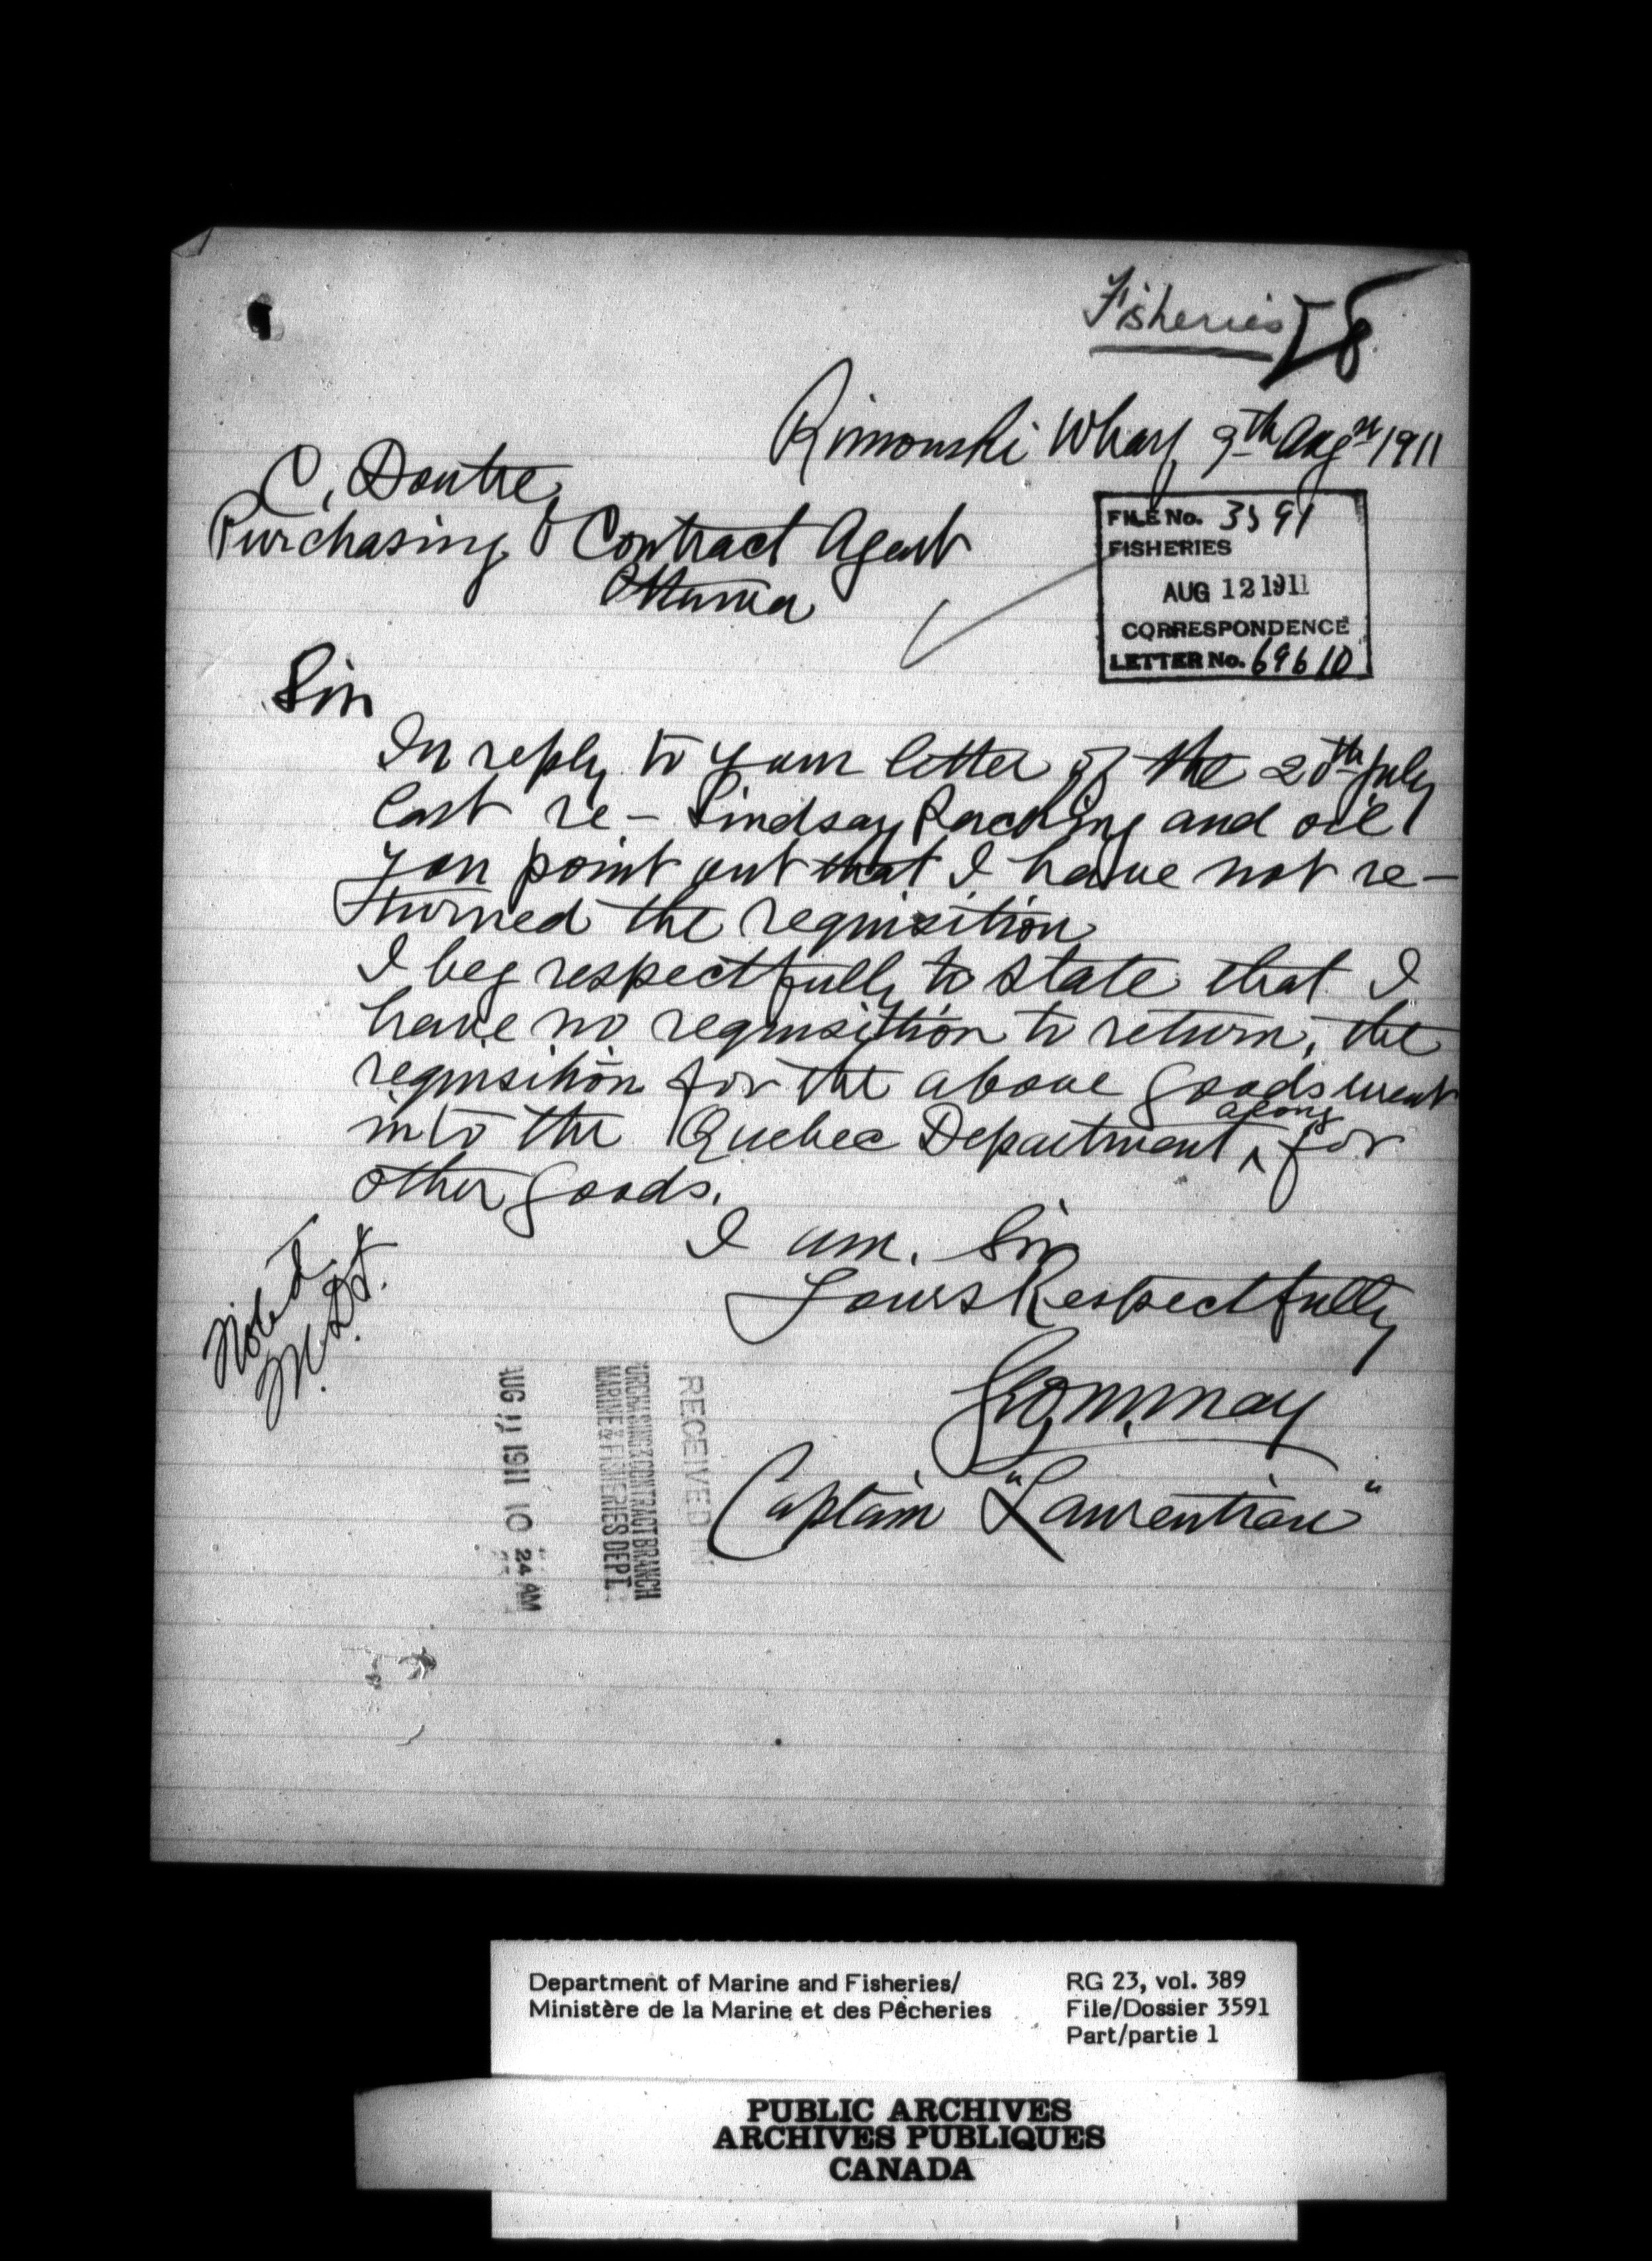 Fisheries 58
Rimouski Wharf 9th Augst 1911
C. Doutre
Purchasing & Contract Agent
Ottawa
FILE No. 3591
FISHERIES
AUG 12 1911
CORRESPONDENCE
LETTER No. 69610
Sir
In reply to your letter of the 20th July
last re - Lindsay Packing and oil
you point out that I have not re-
turned the requisition
I beg respectfully to state that I
have no requisition to return, the
requisition for the above goods went
into the Quebec Department along for
other goods.
I am. Sir
Yours Respectfully
Geo. M. May
Captain "Laurentian"
Noted
RECEIVED IN
PURCHASING & CONTRACT BRANCH
MARINE & FISHERIES DEPT.
AUG 11 1911 10 24 AM
Department of Marine and Fisheries/
Ministère de la Marine et des Pêcheries
RG 23, vol. 389
File/Dossier 3591
Part/partie 1
PUBLIC ARCHIVES
ARCHIVES PUBLIQUES
CANADA